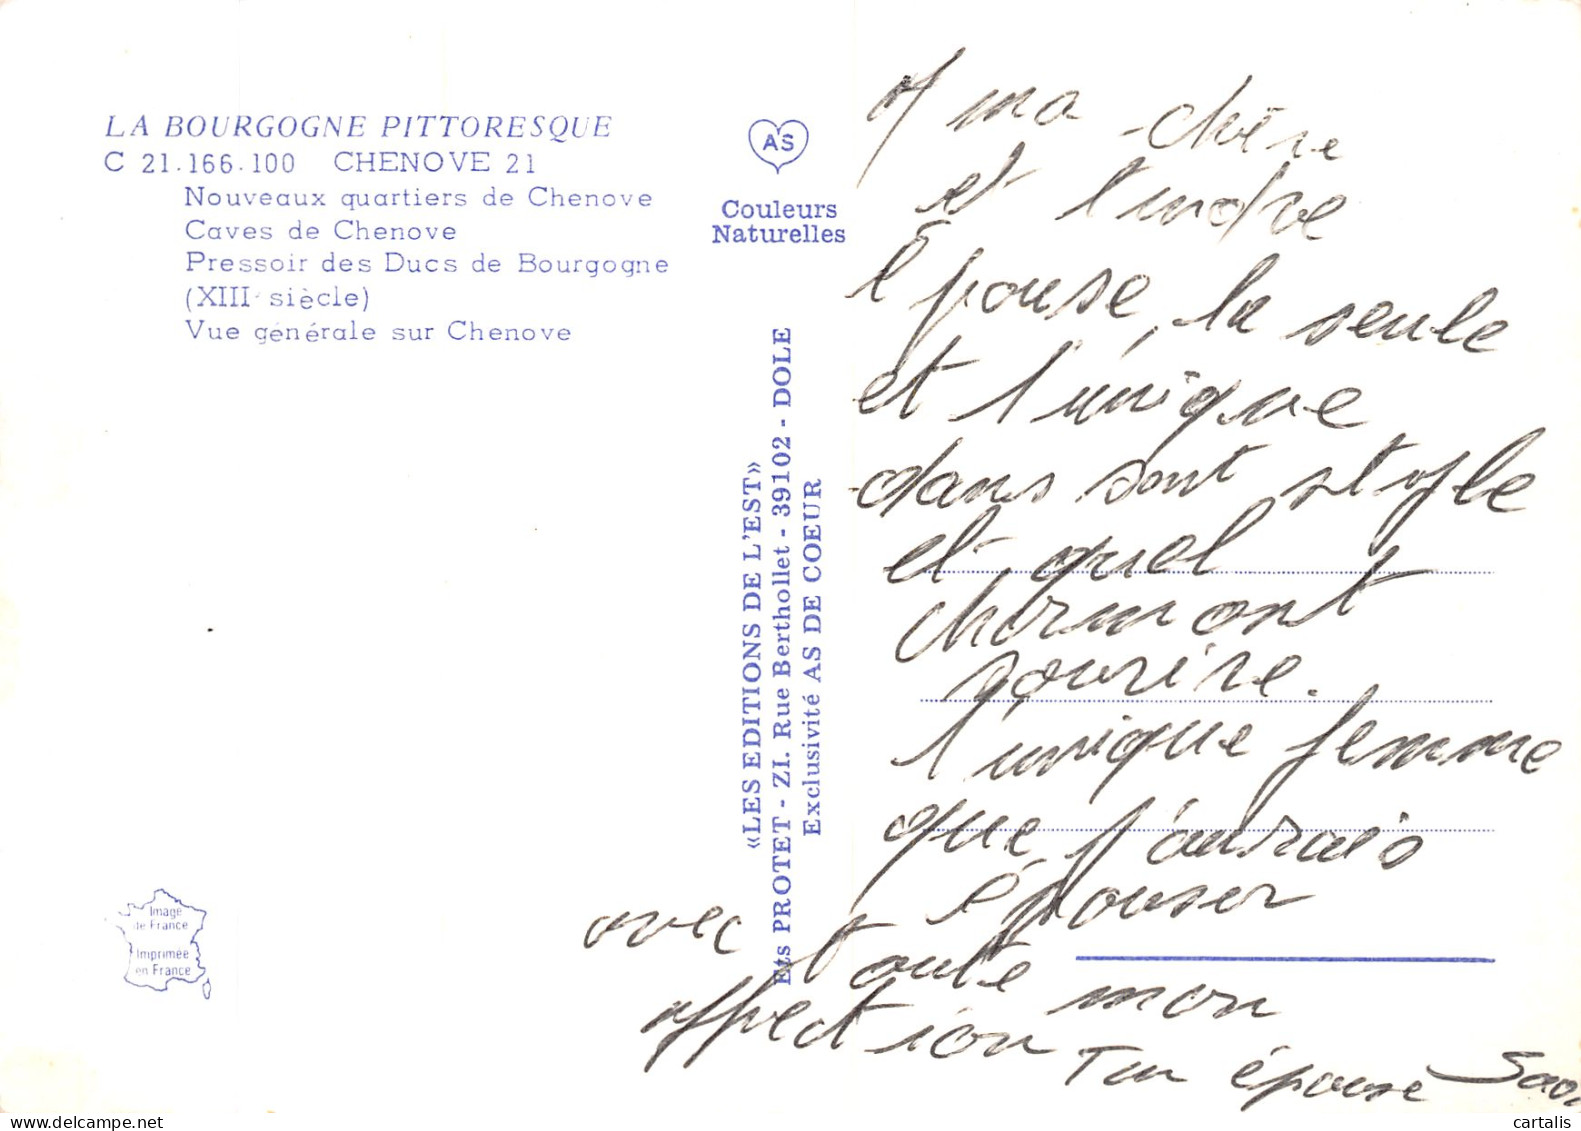 LA BOURGOGNE PITTORESQUE
C 21.166.100 CHENOVE 21
Nouveaux quartiers de Chenove
Caves de Chenove
Pressoir des Ducs de Bourgogne
(XIIIe siècle)
Vue générale sur Chenove
AS
Couleurs
Naturelles
«LES EDITIONS DE L'EST»
Ets PROTET - ZI. Rue Berthollet - 39102 - DOLE
Exclusivité AS DE COEUR
Image
de France
Imprimée
en France
A ma chère
et tendre
épouse, la seule
et l'unique
dans sont style
et quel
charmont
sourire.
l'unique femme
que j'aurais
épouser
avec toute mon
affection
Ton épouse
cartalis